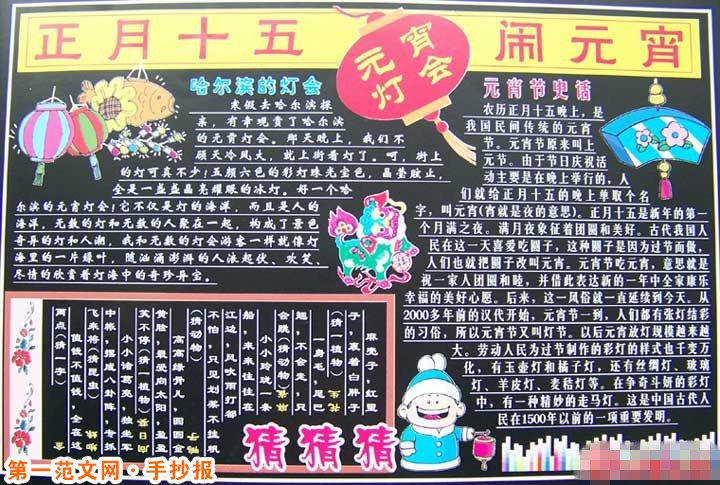 正月十五
元宵
灯会
闹元宵
哈尔滨的灯会
寒假去哈尔滨探
亲，有幸观赏了哈尔滨
的元宵灯会。那天晚上，我们不
顾天冷风大，就上街看灯了。呵，街上
的灯可真不少！五颜六色的彩灯珠光宝色，晶莹眩止，
全是一盏盏晶亮耀眼的冰灯。好一个哈
尔滨的元宵灯会！它不仅是灯的海洋，而且是人的
海洋，无数的灯和无数的人聚在一起，构成了景色
奇异的灯和人潮，我和无数的灯会游客一样就像灯
海里的一片绿叶，随汹涌澎湃的人流起伏、欢笑、
尽情的欣赏着灯海中的奇珍异宝。
元宵节史话
农历正月十五晚上，是
我国民间传统的元宵
节。元宵节原来叫上
元节。由于节日庆祝活
动主要是在晚上举行的，人
们就给正月十五的晚上单取个名
字，叫元宵（宵就是夜的意思）。正月十五是新年的第一
个月满之夜。满月夜象征着团圆和美好。古代我国人
民在这一天喜爱吃圆子，这种圆子是因为过节而做，
人们也就把圆子改叫元宵。元宵节吃元宵，意思就是
祝一家人团圆和睦，并借此表达新的一年中全家康乐
幸福的美好心愿。后来，这一风俗就一直延续到今天。从
2000多年前的汉代开始，元宵节一到，人们都有张灯结彩
的习俗，所以元宵节又叫灯节。以后元宵放灯规模越来越
大。劳动人民为过节制作的彩灯的样式也千变万
化，有玉壶灯和橘子灯，还有丝绸灯、玻璃
灯、羊皮灯、麦秸灯等。在争奇斗妍的彩灯
中，有一种精妙的走马灯。这是中国古代人
民在1500年以前的一项重要发明。
麻壳子，红里
子，裹着白胖子
（猜一植物）
花生
一身毛，尾巴
翘，不会走，只
会跳（猜动物）
麻雀
小小玲珑一条
船，来来往往在
江边，风吹雨打都
不怕，只见划桨不挂帆
（猜动物）
鸭子
高高绿骨儿，圆圆金
黄脸，最爱向太阳，盈盈
笑不停（猜一植物）
小小诸葛亮，独坐军
中帐，摆成八卦阵，专抓
飞来将（猜昆虫）
蜘蛛
值钱不值钱，全在这
两点（猜一字）
金
猜猜猜
第一范文网·手抄报